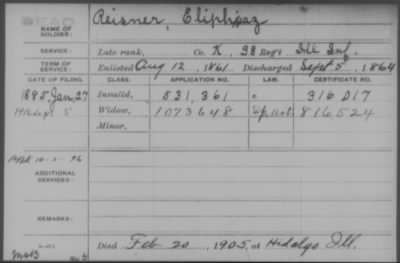 NAME OF SOLDIER: Reisner, Eliphaz
SERVICE: Late rank, Co. K, 38 Reg't Ill Inf.
TERM OF SERVICE: Enlisted Aug 12, 1861 Discharged Sept 5, 1864
DATE OF FILING. CLASS. APPLICATION NO. LAW. CERTIFICATE NO.
1885 Jan, 27 Invalid, 531,361 316017
1916 Sep. 5 Widow, 1073648 Sp. act. 816,524
Minor,
ADDITIONAL SERVICES:
REMARKS:
Died Feb 20, 1905, at Hidalgo Ill.